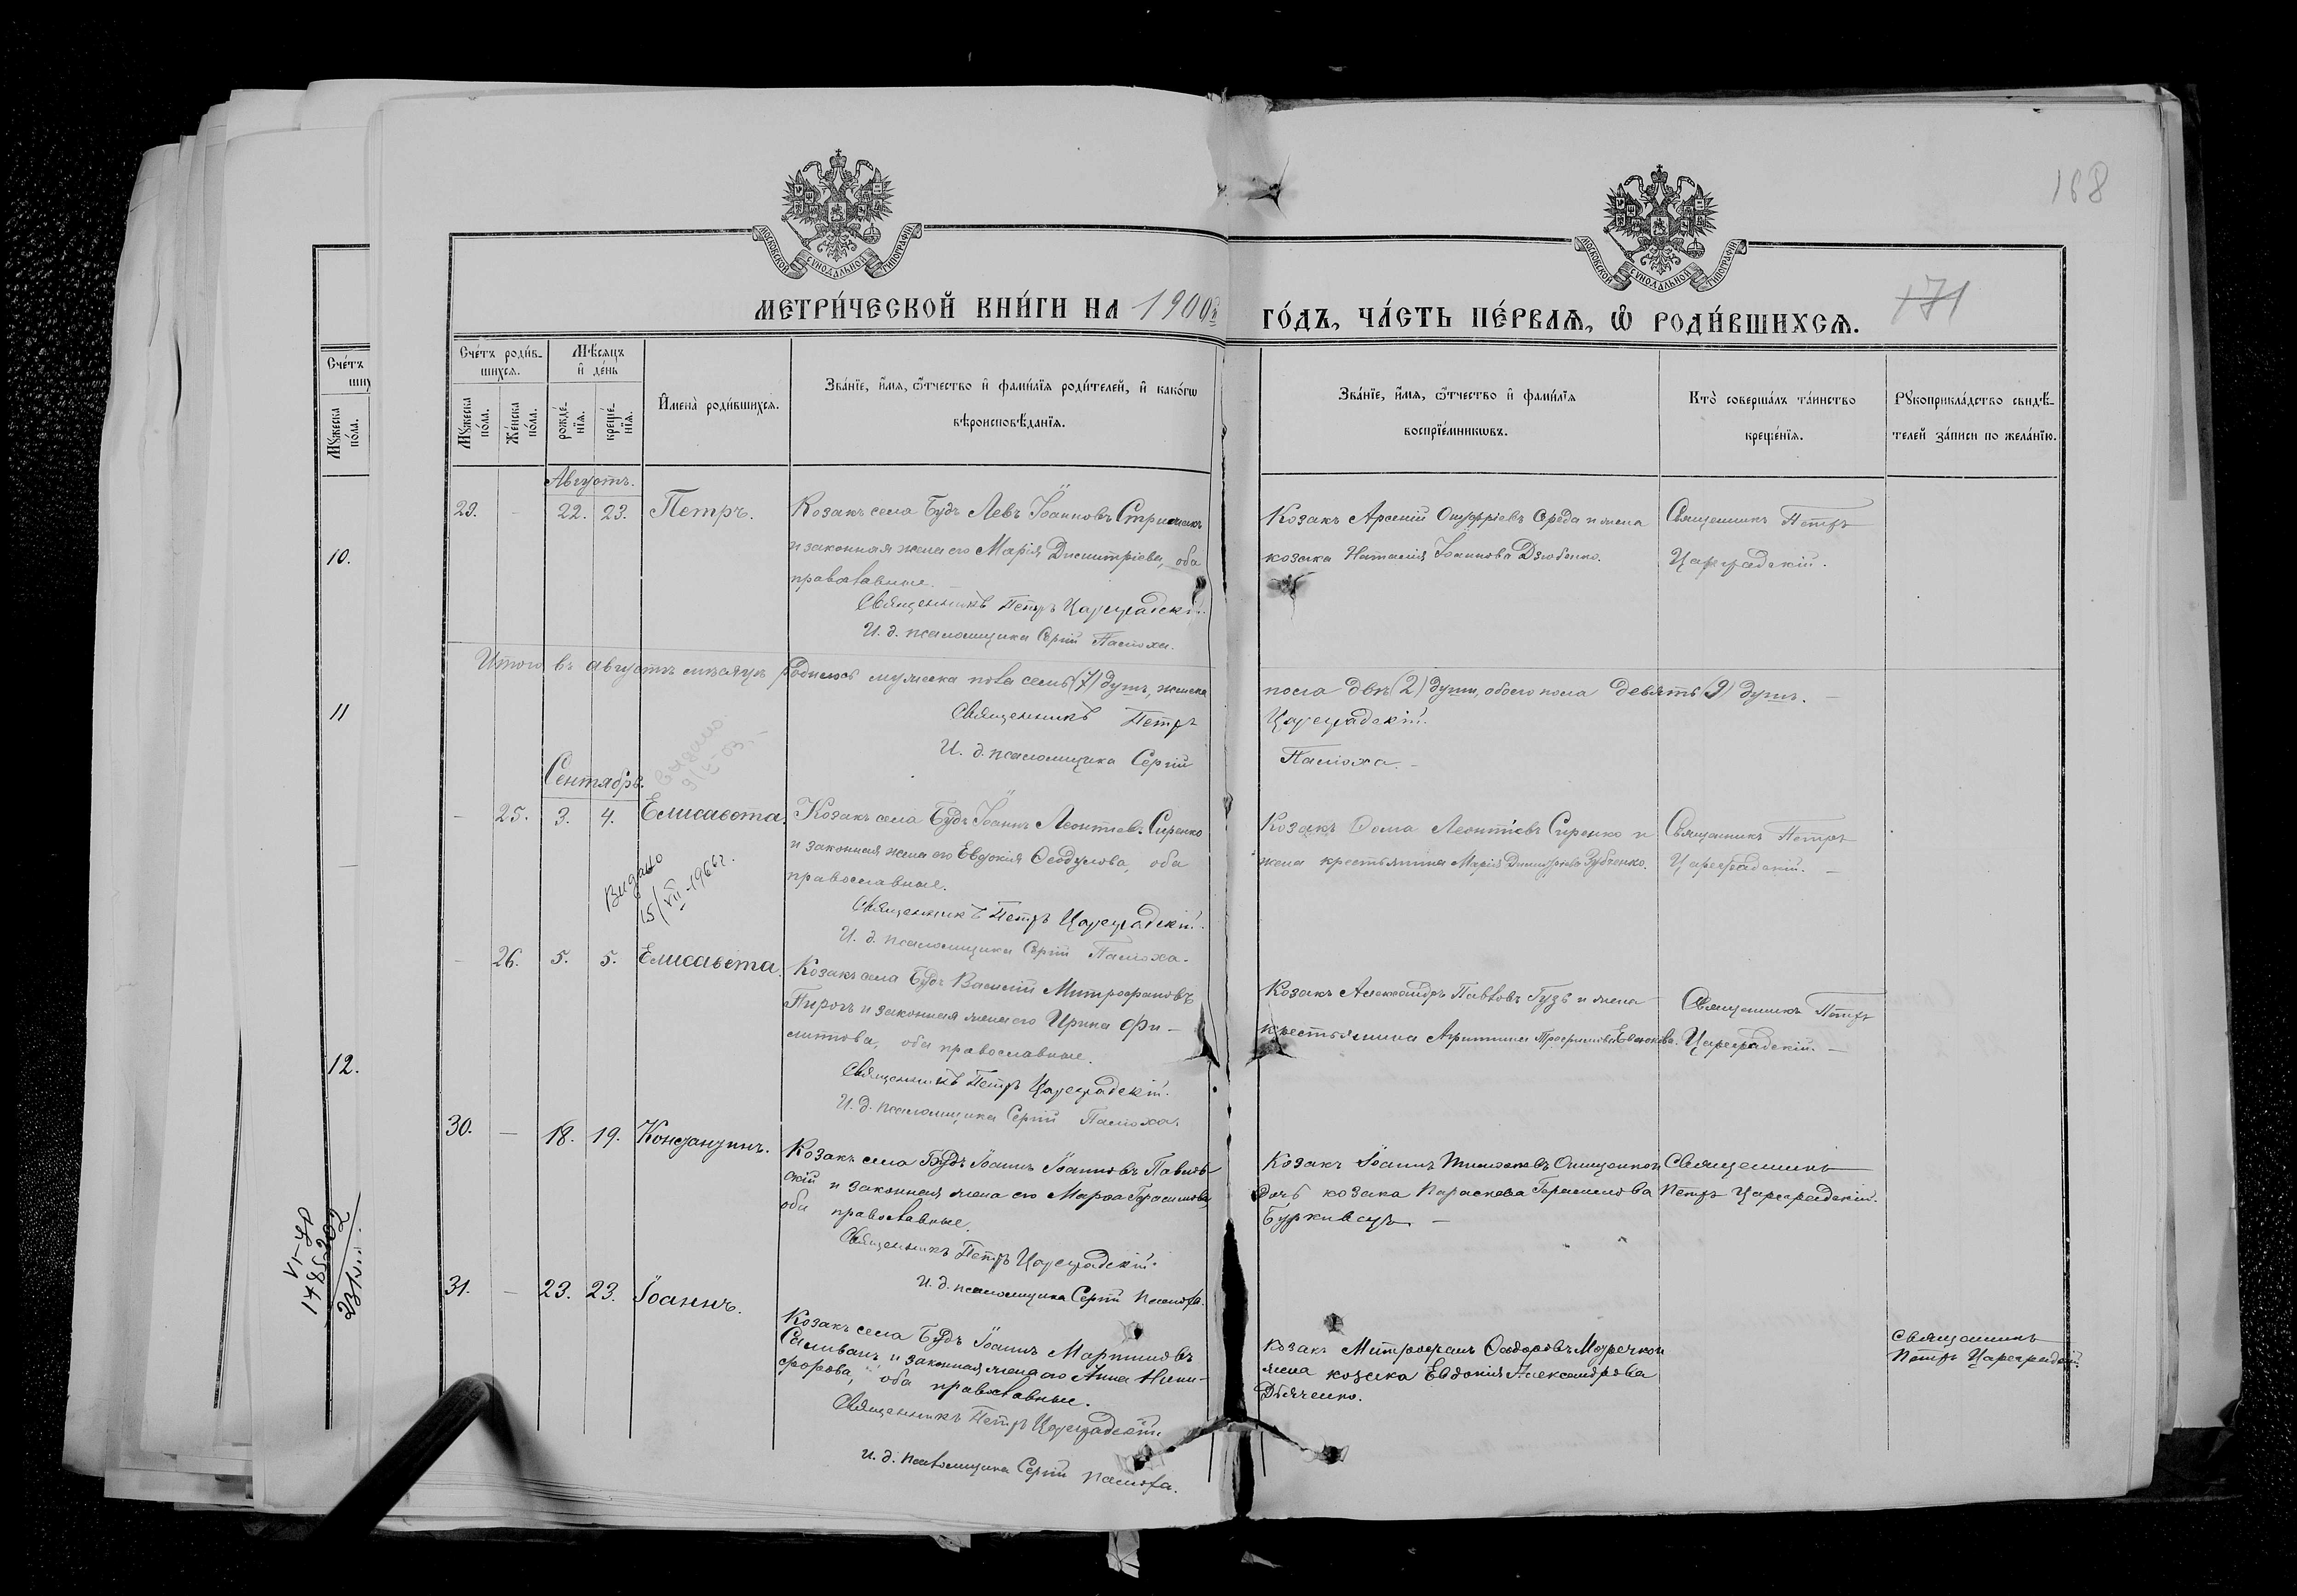 168
МОСКОВСКОЙ СѴНОДАЛЬНОЙ ТИПОГРАФІИ
МОСКОВСКОЙ СѴНОДАЛЬНОЙ ТИПОГРАФІИ
МЕТРИ́ЧЕСКОЙ КНИ́ГИ НА 1900й
ГО́ДЪ, ЧА́СТЬ ПЕ́РВАѦ, Ѽ РОДИ́ВШИХСѦ.
171
Сче́тъ роди́в-
шихсѧ.
Мѣ́сѧцъ
и҆ де́нь
Мꙋжеска по́ла.
Же́нска по́ла.
рожде́-нїѧ.
креще́-нїѧ.
И҆мена̀ роди́вшихсѧ.
Зва́нїе, и҆́мѧ, ѻ҆́тчество и҆ фами́лїѧ роди́телей, и҆ како́гѡ
вѣроисповѣ́данїѧ.
Зва́нїе, и҆́мѧ, ѻ҆́тчество и҆ фами́лїѧ
воспрїе́мникѡвъ.
Кто̀ соверша́лъ та́инство
креще́нїѧ.
Рꙋкоприкла́дство свидѣ́-
телей за́писи по жела́нїю.
Августъ.
29. - 22. 23. Петръ.
Козакъ села Будъ Левъ Іоанновъ
и законная жена его Марія Димитріева, оба
православные.
Священникъ Петръ Цареградскій.
И. д. псаломщика Сергій Палюха.
Козакъ Арсеній Онуфріевъ Середа и жена
козака Наталія Іоаннова Дзюбенко.
Священникъ Петръ
Цареградскій.
Итого въ августѣ мѣсяцѣ родилось мужеска пола семь (7) душъ, женска
пола двѣ (2) души, обоего пола девять (9) душъ. -
Священникъ Петръ
Цареградскій.
И. д. псаломщика Сергій
Палюха. -
Сентябрь.
- 25. 3. 4. Елисавета.
Козакъ села Будъ Іоаннъ Леонтіевъ Сиренко
и законная жена его Евдокія Ѳеодулова, оба
православные.
Священникъ Петръ Цареградскій.
И. д. псаломщика Сергій Палюха.
Козакъ Ѳома Леонтіевъ Сиренко и
жена крестьянина Марія Димитріева Зубченко.
Священникъ Петръ
Цареградскій. -
Видано
15/VII-1966г.
- 26. 5. 5. Елисавета.
Козакъ села Будъ Василій Митрофановъ
Пирогъ и законная жена его Ирина Фи-
липпова, оба православные.
Священникъ Петръ Цареградскій.
И. д. псаломщика Сергій Палюха.
Козакъ Александръ Павловъ Гузь и жена
крестьянина Агриппина Трофимова
Священникъ Петръ
Цареградскій. -
30. - 18. 19. Константинъ.
Козакъ села Будъ Іоаннъ Іоанновъ Павлов-
скій и законная жена его Марѳа Герасимова,
оба православные.
Священникъ Петръ Цареградскій.
И. д. псаломщика Сергій Палюха.
Козакъ Іоаннъ Тимоѳеевъ Онищенко и
дочь козака Параскева Герасимова
Буркивецъ -
Священникъ
Петръ Цареградскій.
31. - 23. 23. Іоаннъ.
Козакъ села Будъ Іоаннъ Мартиновъ
Саливанъ и законная жена его Анна Ники-
форова, оба православные.
Священникъ Петръ Цареградскій.
И. д. псаломщика Сергій Палюха.
Козакъ Митрофанъ Ѳеодоровъ
жена козака Евдокія Александрова
Дяченко.
Священникъ
Петръ Цареградскій.
Сче́тъ
Мꙋжеска по́ла.
10.
11
12.